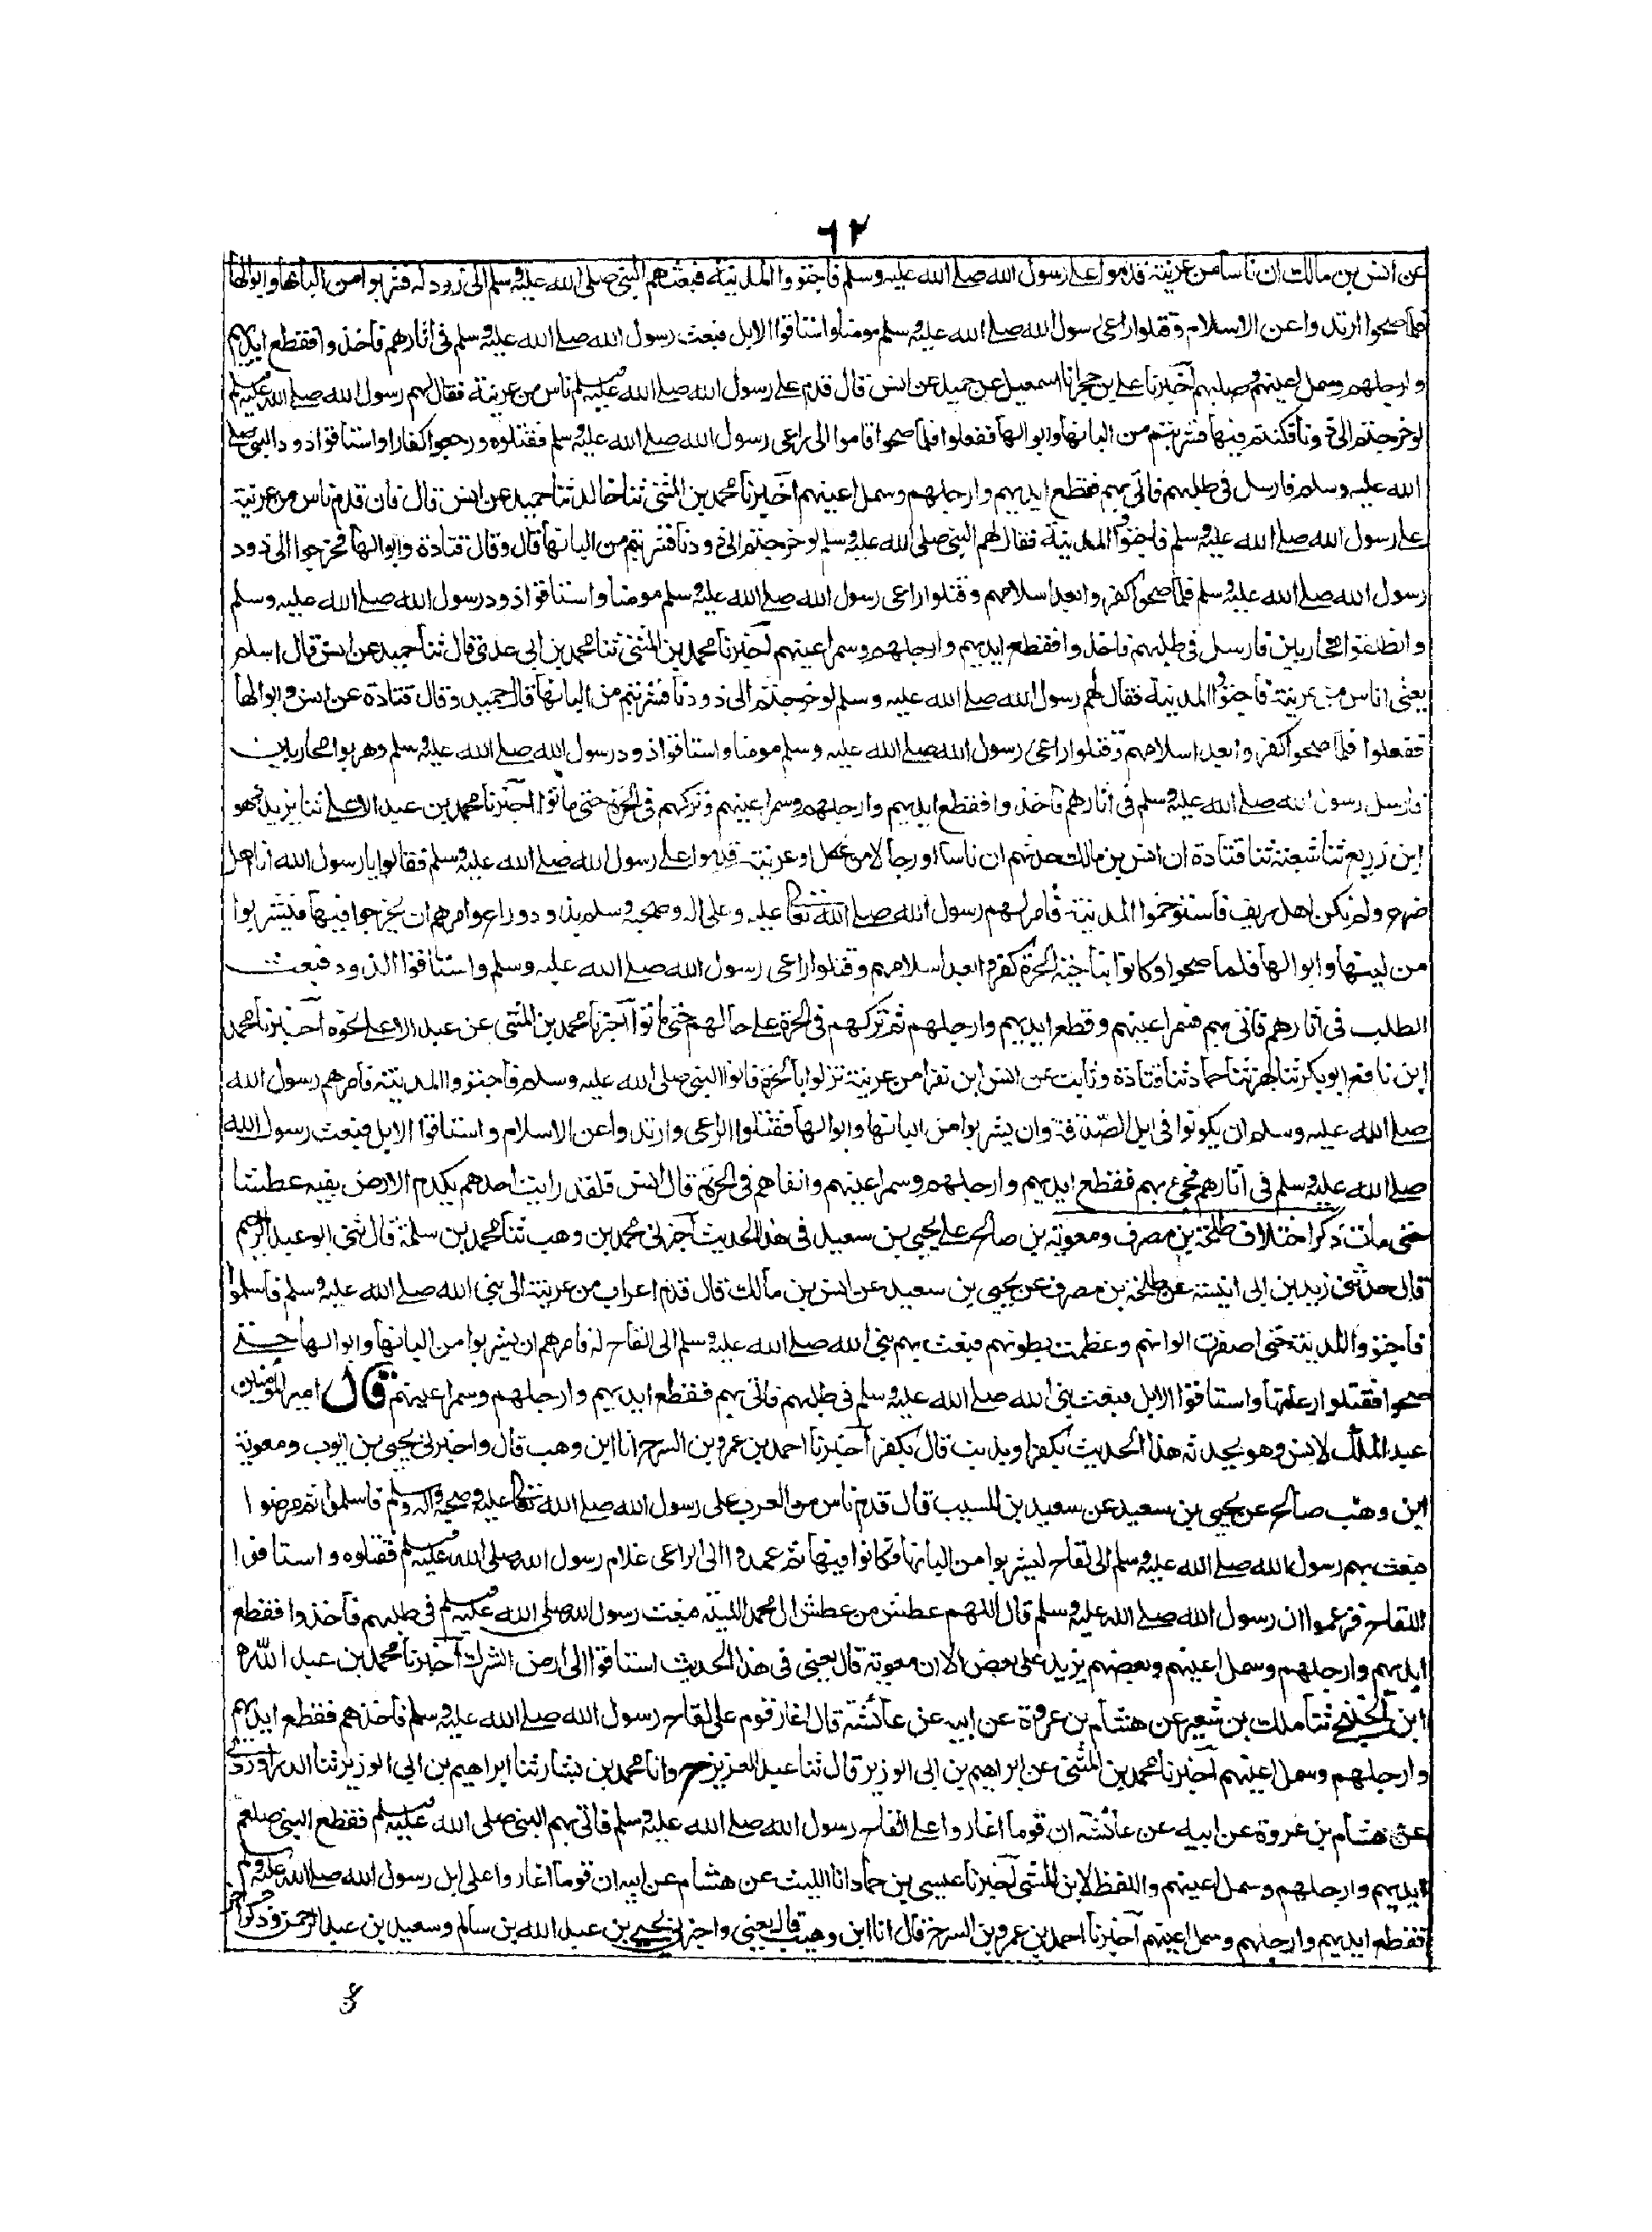 ٦٢
عن انس بن مالك ان ناسا من عرينة قدموا على رسول الله صلى الله عليه وسلم فاجتووا المدينة فبعثهم النبي صلى الله عليه وسلم الى ذود له فشربوا من البانها وابوالها
فلما صحوا ارتدوا عن الاسلام وقتلوا راعى رسول الله صلى الله عليه وسلم مومنا واستاقوا الابل فبعث رسول الله صلى الله عليه وسلم فى اثارهم فاخذوا فقطع ايديهم
وارجلهم وسمل اعينهم وصلبهم اخبرنا على بن حجر انا اسمعيل عن حميد عن انس قال قدم على رسول الله صلى الله عليه وسلم ناس من عرينة فقال لهم رسول الله صلى الله عليه وسلم
لو خرجتم الى ذودنا فكنتم فيها فشربتم من البانها وابوالها ففعلوا فلما صحوا قاموا الى راعى رسول الله صلى الله عليه وسلم فقتلوه ورجعوا كفارا واستاقوا ذود النبي صلى
الله عليه وسلم فارسل فى طلبهم فاتى بهم فقطع ايديهم وارجلهم وسمل اعينهم اخبرنا محمد بن المثنى ثنا خالد ثنا حميد عن انس قال قدم ناس من عرينة
على رسول الله صلى الله عليه وسلم فاجتووا المدينة فقال لهم النبي صلى الله عليه وسلم لو خرجتم الى ذودنا فشربتم من البانها قال وقال قتادة وابوالها فخرجوا الى ذود
رسول الله صلى الله عليه وسلم فلما صحوا كفروا بعد اسلامهم وقتلوا راعى رسول الله صلى الله عليه وسلم مومنا واستاقوا ذود رسول الله صلى الله عليه وسلم
وانطلقوا محاربين فارسل فى طلبهم فاخذوا فقطع ايديهم وارجلهم وسمر اعينهم اخبرنا محمد بن المثنى ثنا محمد بن ابى عدى قال ثنا حميد عن انس قال اسلم
يعنى اناس من عرينة فاجتووا المدينة فقال لهم رسول الله صلى الله عليه وسلم لو خرجتم الى ذودنا فشربتم من البانها قال حميد وقال قتادة عن انس وابوالها
ففعلوا فلما صحوا كفروا بعد اسلامهم وقتلوا راعى رسول الله صلى الله عليه وسلم مومنا واستاقوا ذود رسول الله صلى الله عليه وسلم وهربوا محاربين
فارسل رسول الله صلى الله عليه وسلم فى اثارهم فاخذوا فقطع ايديهم وارجلهم وسمر اعينهم وتركهم فى الحرة حتى ماتوا اخبرنا محمد بن عبد الاعلى ثنا يزيد وهو
ابن زريع ثنا شعبة ثنا قتادة ان انس بن مالك حدثهم ان ناسا او رجالا من عكل او عرينة قدموا على رسول الله صلى الله عليه وسلم فقالوا يا رسول الله انا اهل
ضرع ولم نكن اهل ريف فاستوخموا المدينة فامر لهم رسول الله صلى الله تعالى عليه وعلى اله وصحبه وسلم بذود وراع وامرهم ان يخرجوا فيها فيشربوا
من لبنها وابوالها فلما صحوا وكانوا بناحية الحرة كفروا بعد اسلامهم وقتلوا راعى رسول الله صلى الله عليه وسلم واستاقوا الذود فبعث
الطلب فى اثارهم فاتى بهم فسمر اعينهم وقطع ايديهم وارجلهم ثم تركهم فى الحرة على حالهم حتى ماتوا اخبرنا محمد بن المثنى عن عبد الاعلى نحوه اخبرنا محمد
ابن نافع ابو بكر ثنا بهز ثنا حماد ثنا قتادة وثابت عن انس ان نفرا من عرينة نزلوا بالحرة فاتوا النبي صلى الله عليه وسلم فاجتووا المدينة فامرهم رسول الله
صلى الله عليه وسلم ان يكونوا فى ابل الصدقة وان يشربوا من البانها وابوالها فقتلوا الراعى وارتدوا عن الاسلام واستاقوا الابل فبعث رسول الله
صلى الله عليه وسلم فى اثارهم فجىء بهم فقطع ايديهم وارجلهم وسمر اعينهم والقاهم فى الحرة قال انس فلقد رايت احدهم يكدم الارض بفيه عطشا
حتى مات ذكر اختلاف طلحة بن مصرف ومعوية بن صالح على يحيى بن سعيد فى هذا الحديث اخبرنى محمد بن وهب ثنا محمد بن سلمة قال ثنى ابو عبد الرحيم
قال حدثنى زيد بن ابى انيسة عن طلحة بن مصرف عن يحيى بن سعيد عن انس بن مالك قال قدم اعراب من عرينة الى نبى الله صلى الله عليه وسلم فاسلموا
فاجتووا المدينة حتى اصفرت الوانهم وعظمت بطونهم فبعث بهم نبى الله صلى الله عليه وسلم الى لقاح له فامرهم ان يشربوا من البانها وابوالها حتى
صحوا فقتلوا رعاتها واستاقوا الابل فبعث نبى الله صلى الله عليه وسلم فى طلبهم فاتى بهم فقطع ايديهم وارجلهم وسمر اعينهم قال امير المؤمنين
عبد الملك لانس وهو يحدثه هذا الحديث بكفر او بذنب قال بكفر اخبرنا احمد بن عمرو بن السرح انا ابن وهب قال واخبرنى يحيى بن ايوب ومعوية
ابن وهب صالح عن يحيى بن سعيد عن سعيد بن المسيب قال قدم ناس من العرب على رسول الله صلى الله تعالى عليه وصحبه واله وسلم فاسلموا ثم مرضوا
فبعث بهم رسول الله صلى الله عليه وسلم الى لقاح ليشربوا من البانها فكانوا فيها ثم عمدوا الى الراعى غلام رسول الله صلى الله عليه وسلم فقتلوه واستاقوا
اللقاح فزعموا ان رسول الله صلى الله عليه وسلم قال اللهم عطش من عطش ال محمد الليلة فبعث رسول الله صلى الله عليه وسلم فى طلبهم فاخذوا فقطع
ايديهم وارجلهم وسمل اعينهم وبعضهم يزيد على بعض الا ان معوية قال يعنى فى هذا الحديث استاقوا الى ارض الشرك اخبرنا محمد بن عبد الله
ابن الخلنجى ثنا ملك بن سعير عن هشام بن عروة عن ابيه عن عائشة قال اغار قوم على لقاح رسول الله صلى الله عليه وسلم فاخذهم فقطع ايديهم
وارجلهم وسمل اعينهم اخبرنا محمد بن المثنى عن ابراهيم بن ابى الوزير قال ثنا عبد العزيز ح وانا محمد بن بشار ثنا ابراهيم بن ابى الوزير ثنا الدراوردى
عن هشام بن عروة عن ابيه عن عائشة ان قوما اغاروا على لقاح رسول الله صلى الله عليه وسلم فاتى بهم النبي صلى الله عليه وسلم فقطع النبي صلعم
ايديهم وارجلهم وسمل اعينهم واللفظ لابن المثنى اخبرنا عيسى بن حماد انا الليث عن هشام عن ابيه ان قوما اغاروا على ابل رسول الله صلى الله عليه وسلم
فقطع ايديهم وارجلهم وسمل اعينهم اخبرنا احمد بن عمرو بن السرح قال انا ابن وهب قال يعنى واخبرنى يحيى بن عبد الله بن سالم وسعيد بن عبد الرحمن وذكر اخر